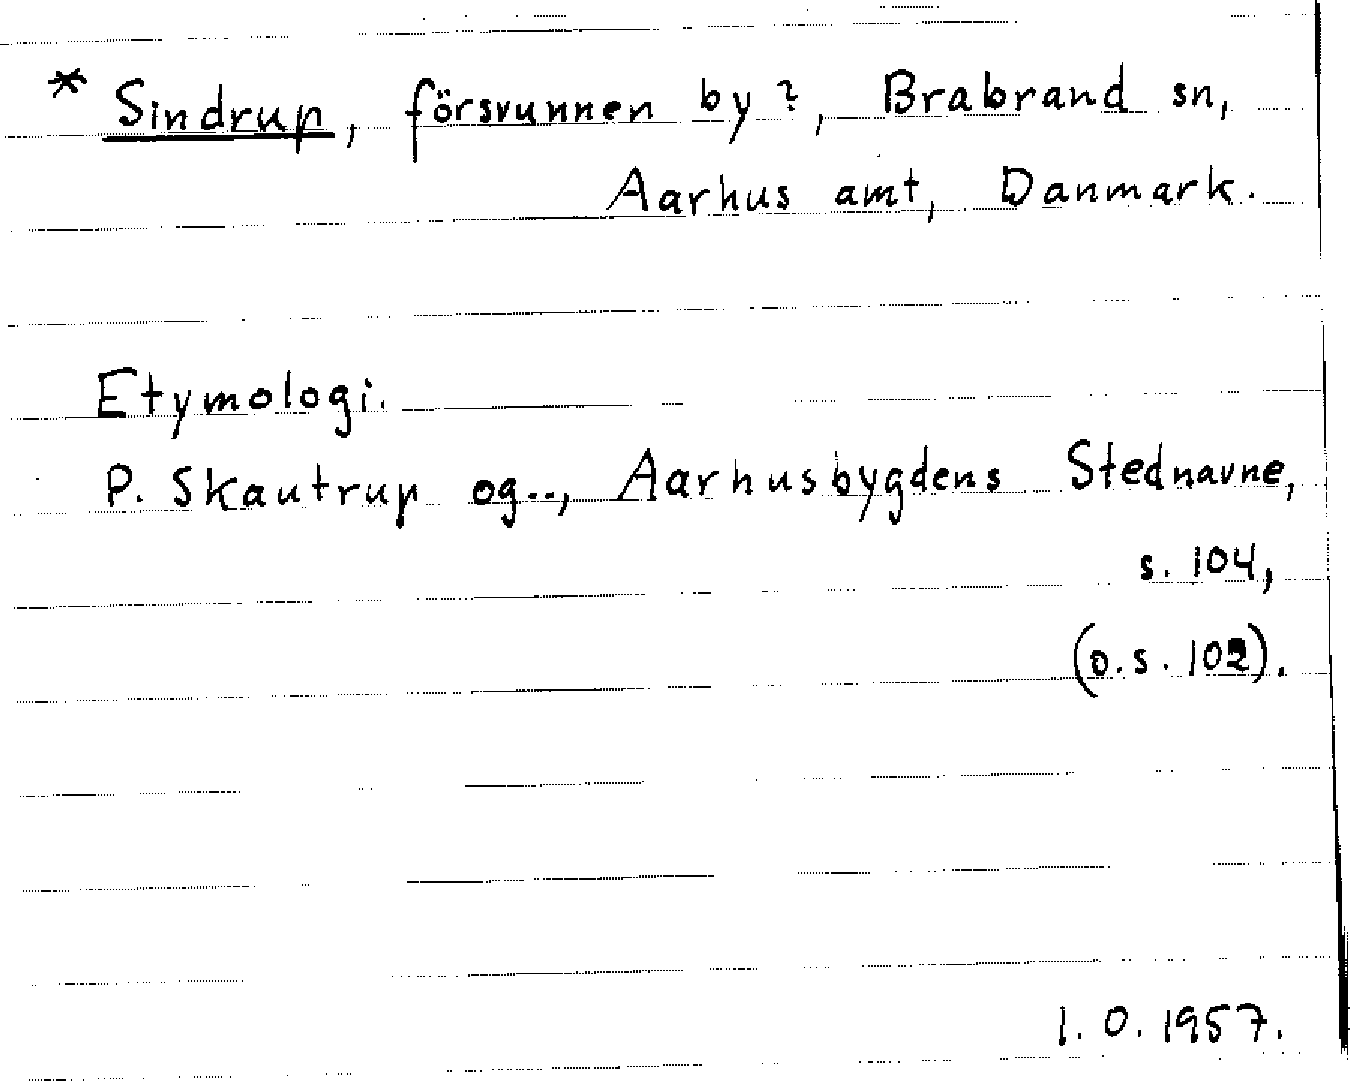 * Sindrup, försvunnen by?, Brabrand sn,
Aarhus amt, Danmark.
Etymologi.
P. Skautrup og.., Aarhusbygdens Stednavne,
s. 104,
(o.s. 102).
I.O. 1957.